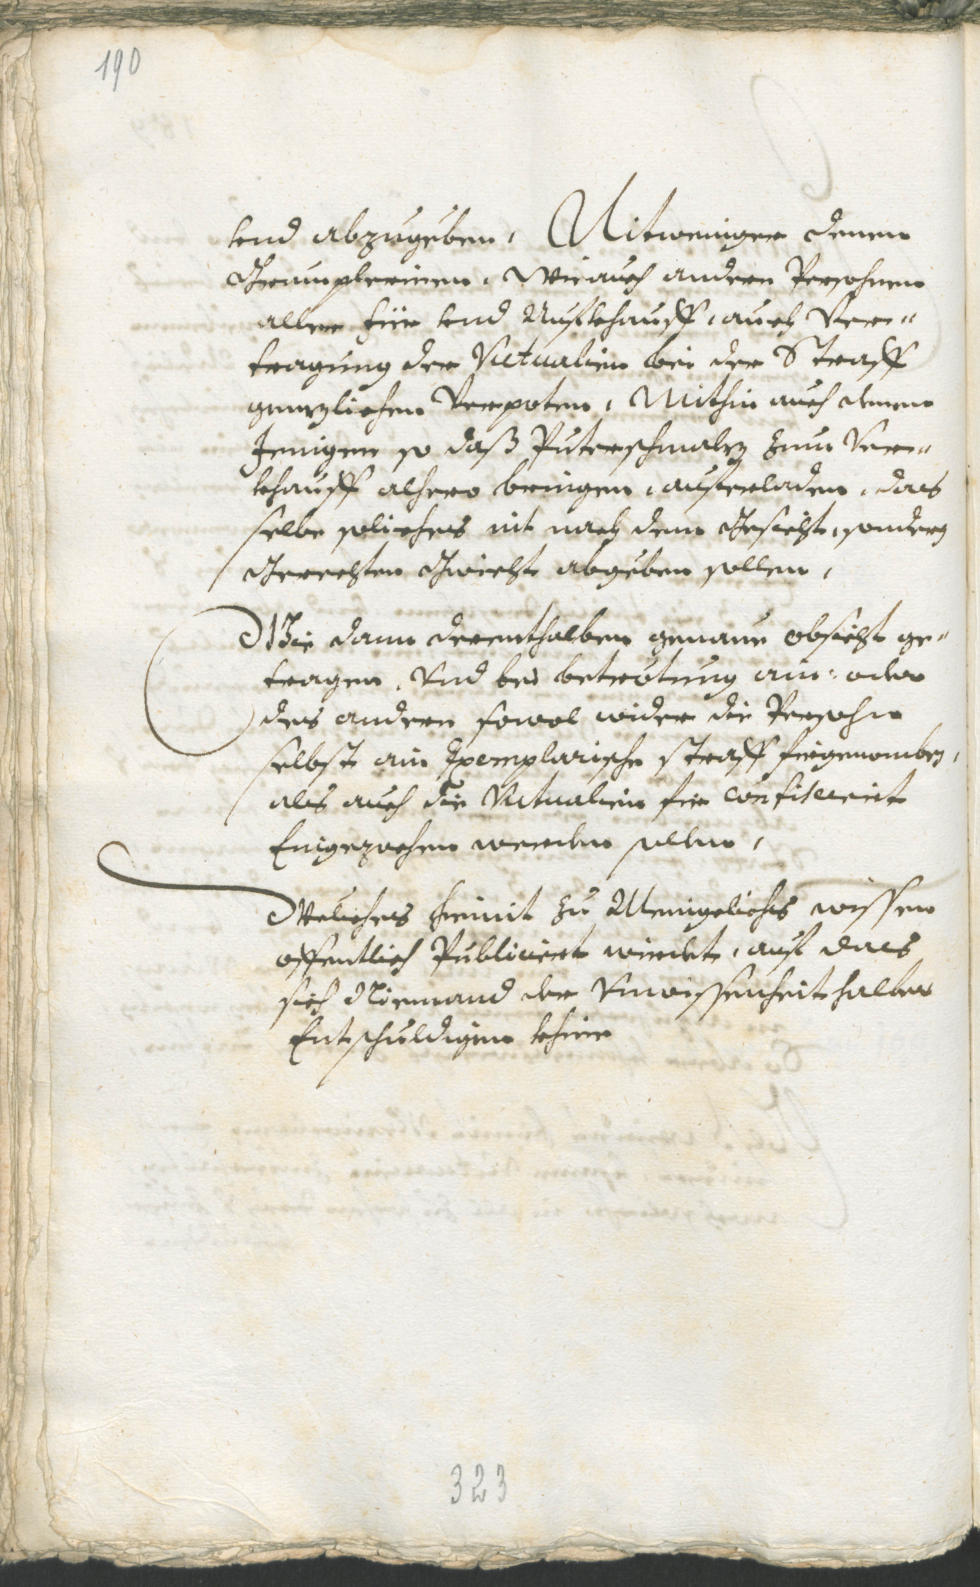 190
und abzugeben, Nitweniger denen
Grämplerinen, Wie auch andern Persohnen
aller für und Aufkhauff, auch Ver-"
tragung der Victualien bei der Straff
genzlichen Verpoten, Mithin auch denen
Jenigen so daß Puterschmalz zum Ver-"
khauff alhero bringen, auferladen, das
selbe soliches nit nach dem Gesicht, sondern
Gerechten Gwicht abgeben sollen,
Wie dann derenthalben genaue obsicht ge-"
tragen, Und bei betretung ain: oder
des andern sowol wider die Persohn
selbst ain Exemplarische straff firgenomben,
als auch die Victualien fir confisciert
Eingezochen werden sollen,
Weliches hiemit zu Meniglichs wissen
offentlich Publiciert wirdet, auf das
sich Niemand der Unwissenheit halber
Entschuldigen khine
323